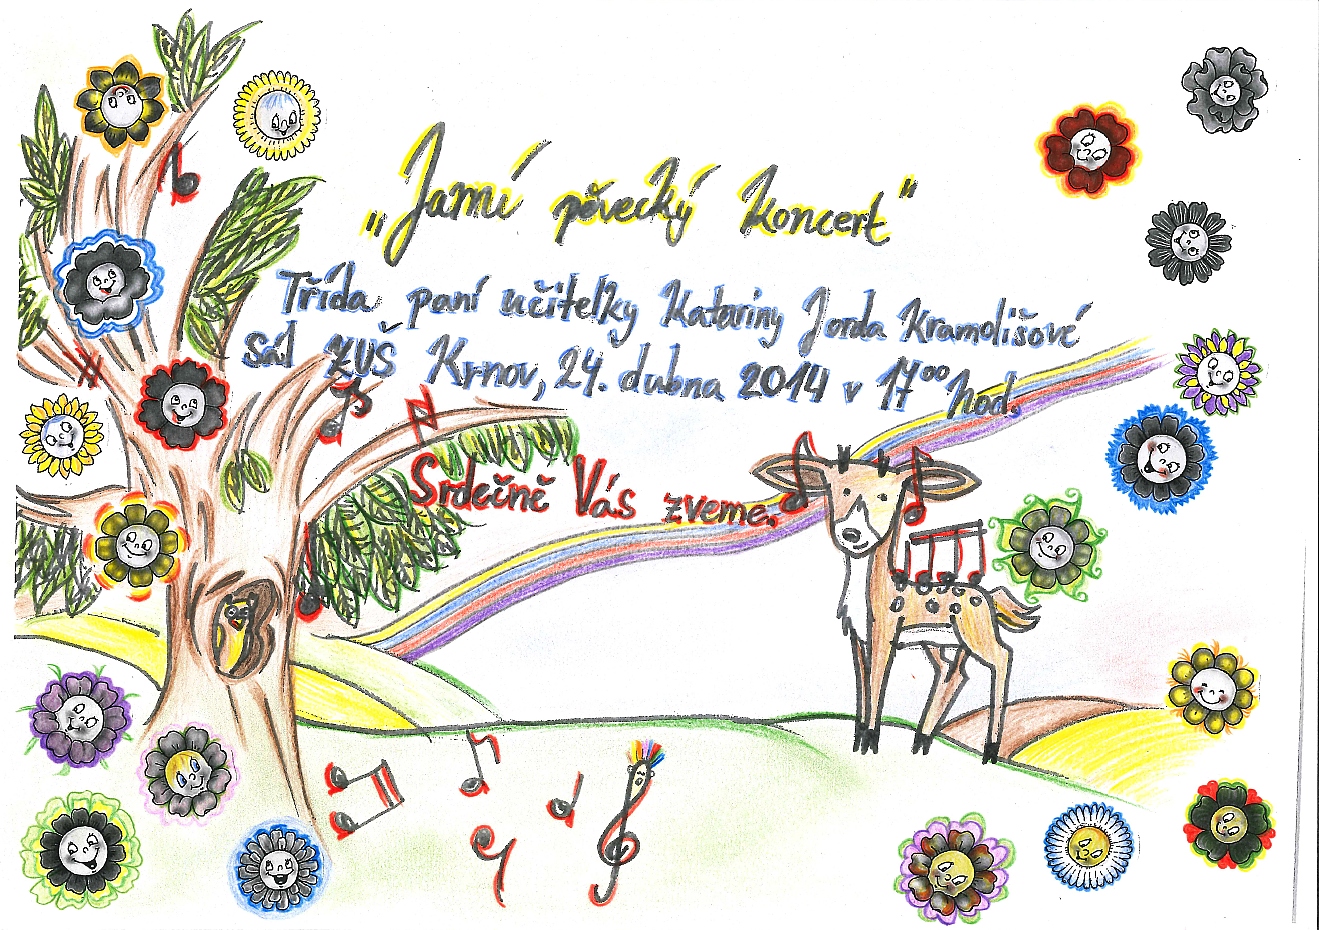 „Jarní pěvecký koncert"
Třída paní učitelky Katariny Jorda Kramolišové
Sál ZUŠ Krnov, 24. dubna 2014 v 17⁰⁰ hod.
Srdečně Vás zveme.